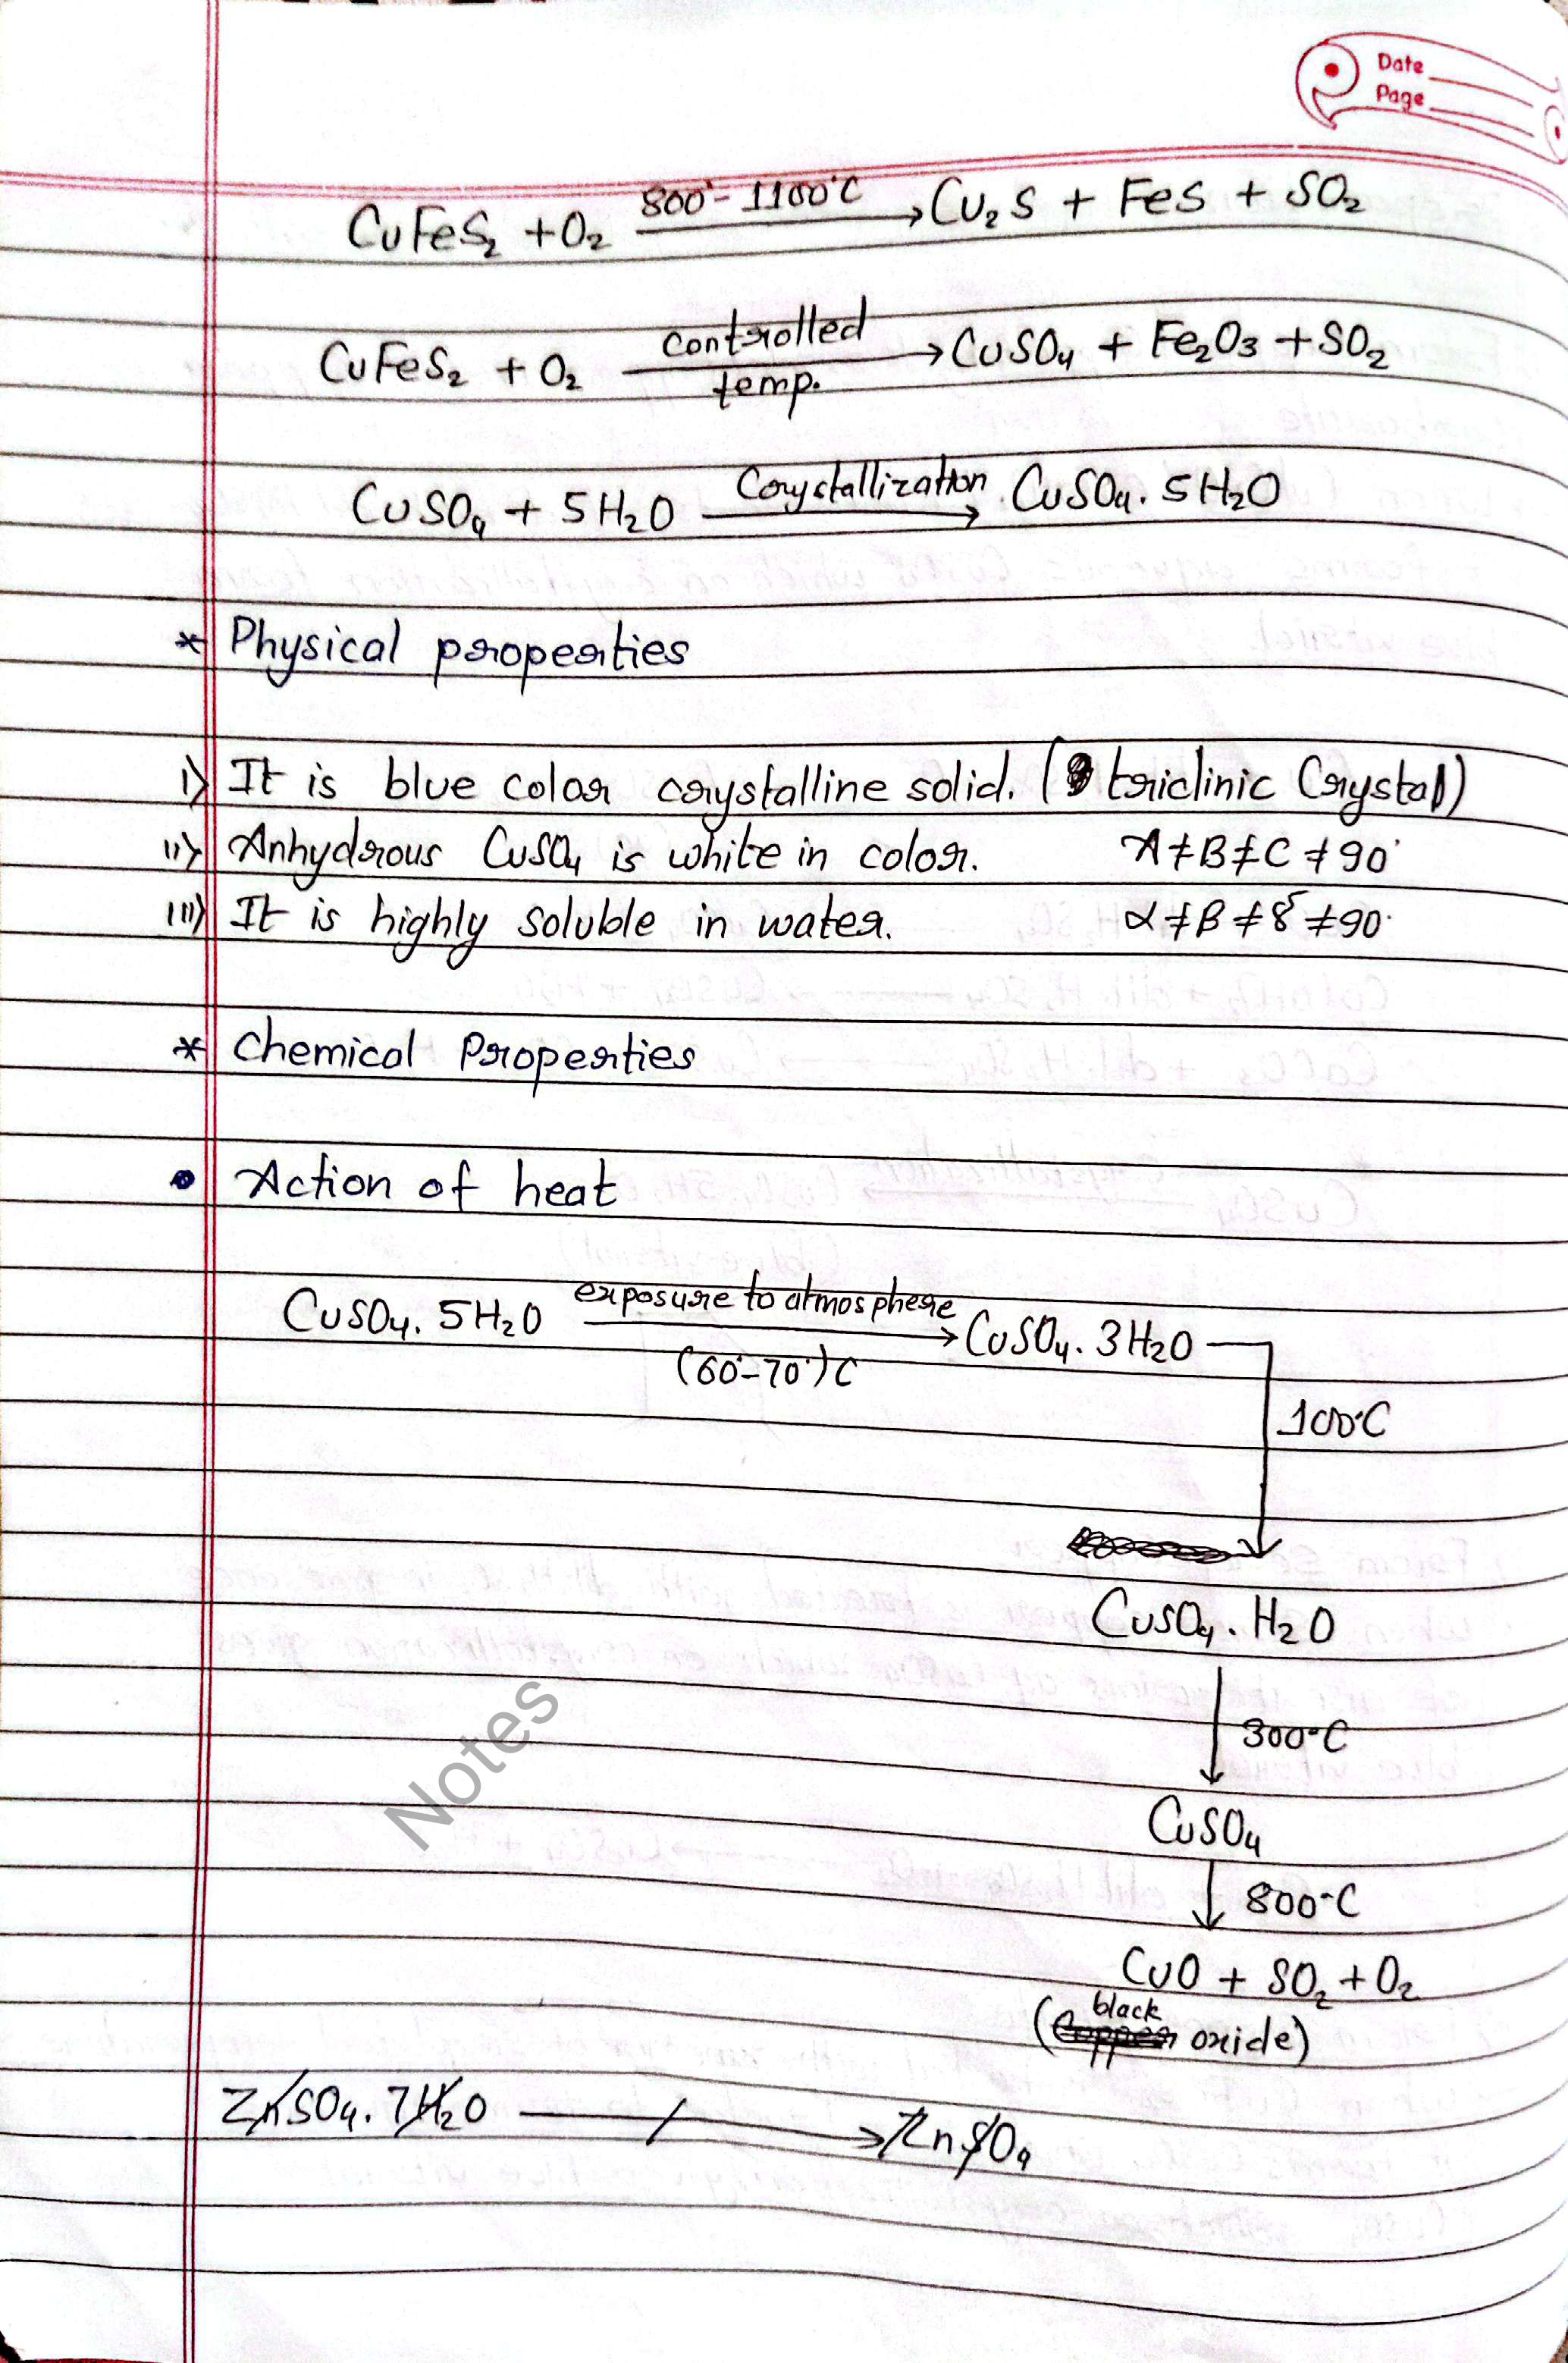 Date
Page
CuFeS₂ + O₂ 800°-1100°C → Cu₂S + FeS + SO₂
CuFeS₂ + O₂ controlled temp. → CuSO₄ + Fe₂O₃ + SO₂
CuSO₄ + 5H₂O Crystallization → CuSO₄. 5H₂O
* Physical properties
i) It is blue color crystalline solid. (triclinic Crystal)
ii) Anhydrous CuSO₄ is white in color. A ≠ B ≠ C ≠ 90°
iii) It is highly soluble in water. α ≠ β ≠ 8 ≠ 90°
* Chemical Properties
• Action of heat
CuSO₄. 5H₂O exposure to atmosphere (60°-70°)C → CuSO₄. 3H₂O
100°C
CuSO₄. H₂O
↓ 300°C
CuSO₄
↓ 800°C
CuO + SO₂ + O₂
(black oxide)
ZnSO₄. 7H₂O → ZnSO₄
Notes